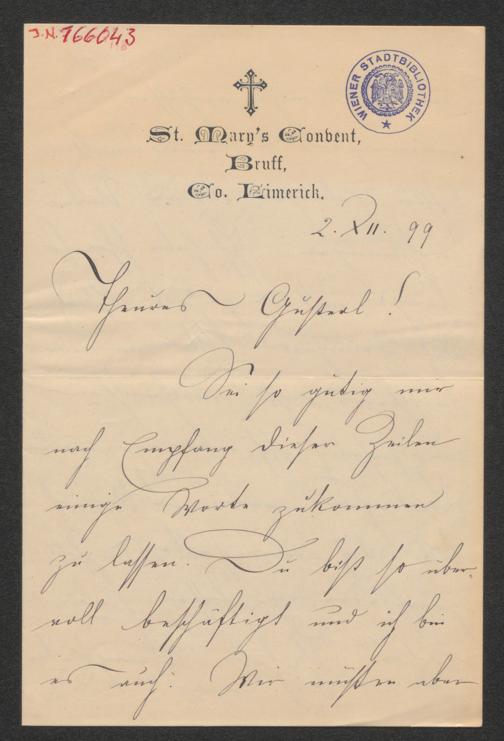 J.N. 166043
WIENER STADTBIBLIOTHEK
St. Mary's Convent,
Bruff,
Co. Limerick.
2. XII. 99
Theures Gusterl!
Sei so gütig mir
nach Empfang dieser Zeilen
einige Worte zukommen
zu lassen. Du bist so über-
voll beschäftigt und ich bin
es auch: Wir müssen aber